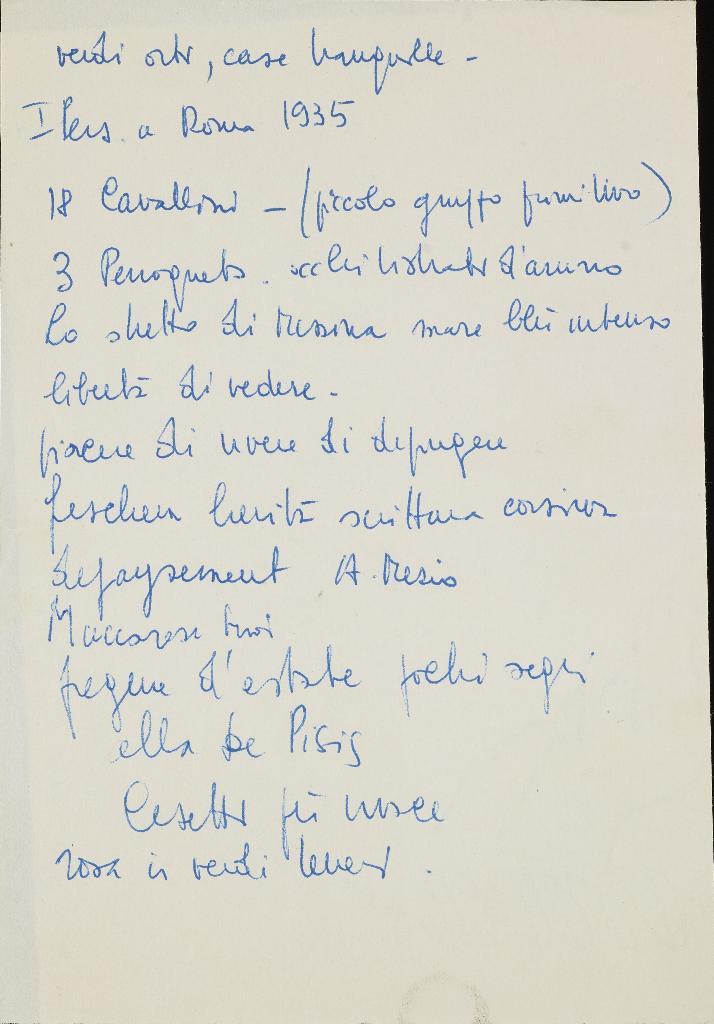 verdi orti, case tranquille -
I Pers. a Roma 1935
18 Cavallini - (piccolo gruppo primitivo)
3 Perroquets. occhi listrati d'
Lo stretto di Messina mare blù intenso
libertà di vedere -
piacere di vivere di dipingere
freschezza scrittura corsiva
depaysement A.
Maccarese buoi
fregene d'estate pochi segni
alla De Pisis
Casetta più
rosa in verdi teneri.